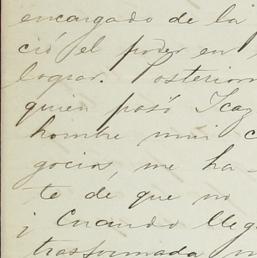 encargado de la
ció el poder en
lograr. Posteriorm
quien pasó Icaz
hombre mui c
gocios, me ha-
te de que no
¡Cuando lleg
trasformada